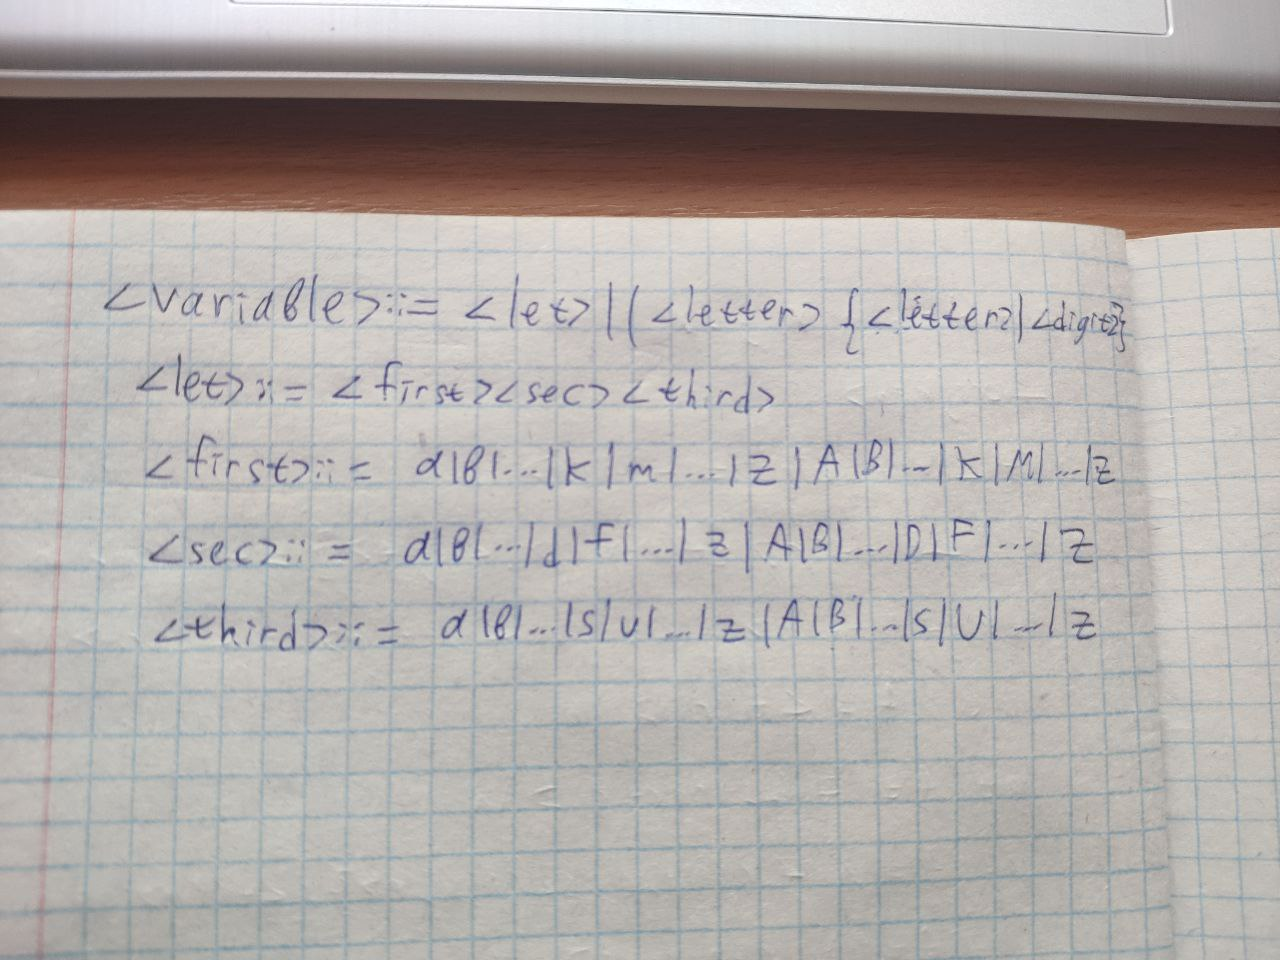 <variable>::= <let>|(<letter> {<letter>|<digit>}
<let>::= <first><sec><third>
<first>::= a|b|...|k|m|...|z|A|B|...|K|M|...|Z
<sec>::= a|b|...|d|f|...|z|A|B|...|D|F|...|Z
<third>::= a|b|...|s|u|...|z|A|B|...|S|U|...|Z